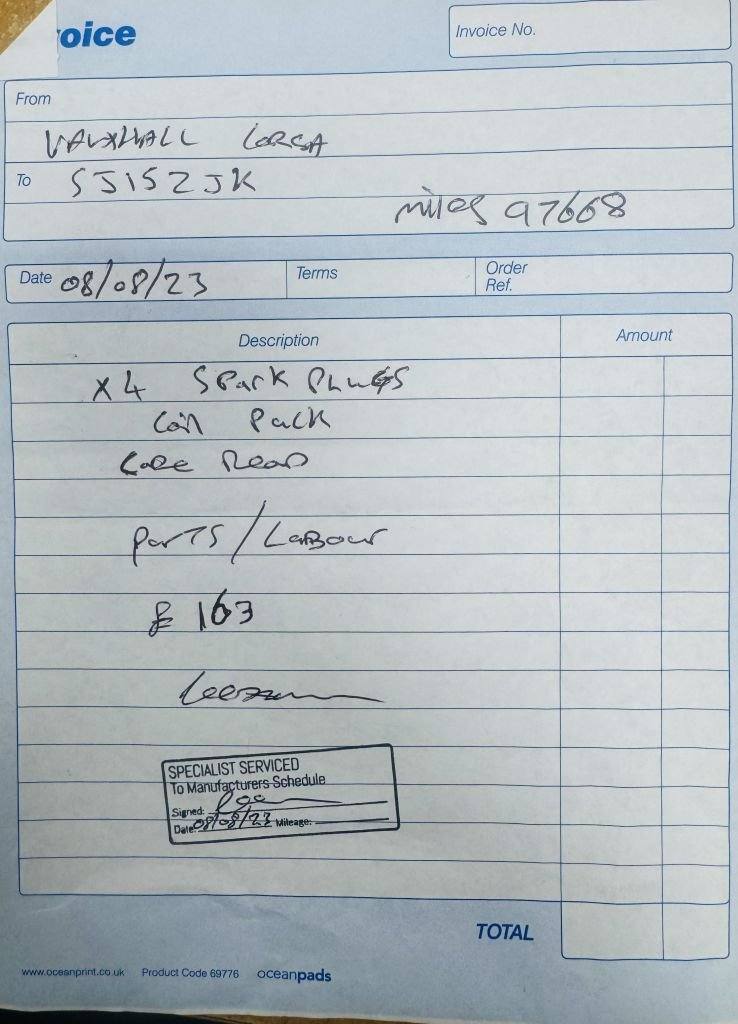 oice
Invoice No.
From
VAUXHALL CORSA
To SJ15ZJK
miles 97668
Date 08/08/23 Terms Order Ref.
Description Amount
X4 Spark Plugs
Coil Pack
Code Read
Parts/Labour
£ 163
SPECIALIST SERVICED
To Manufacturers Schedule
Signed:
Date: 08/08/23 Mileage:
TOTAL
www.oceanprint.co.uk Product Code 69776 oceanpads